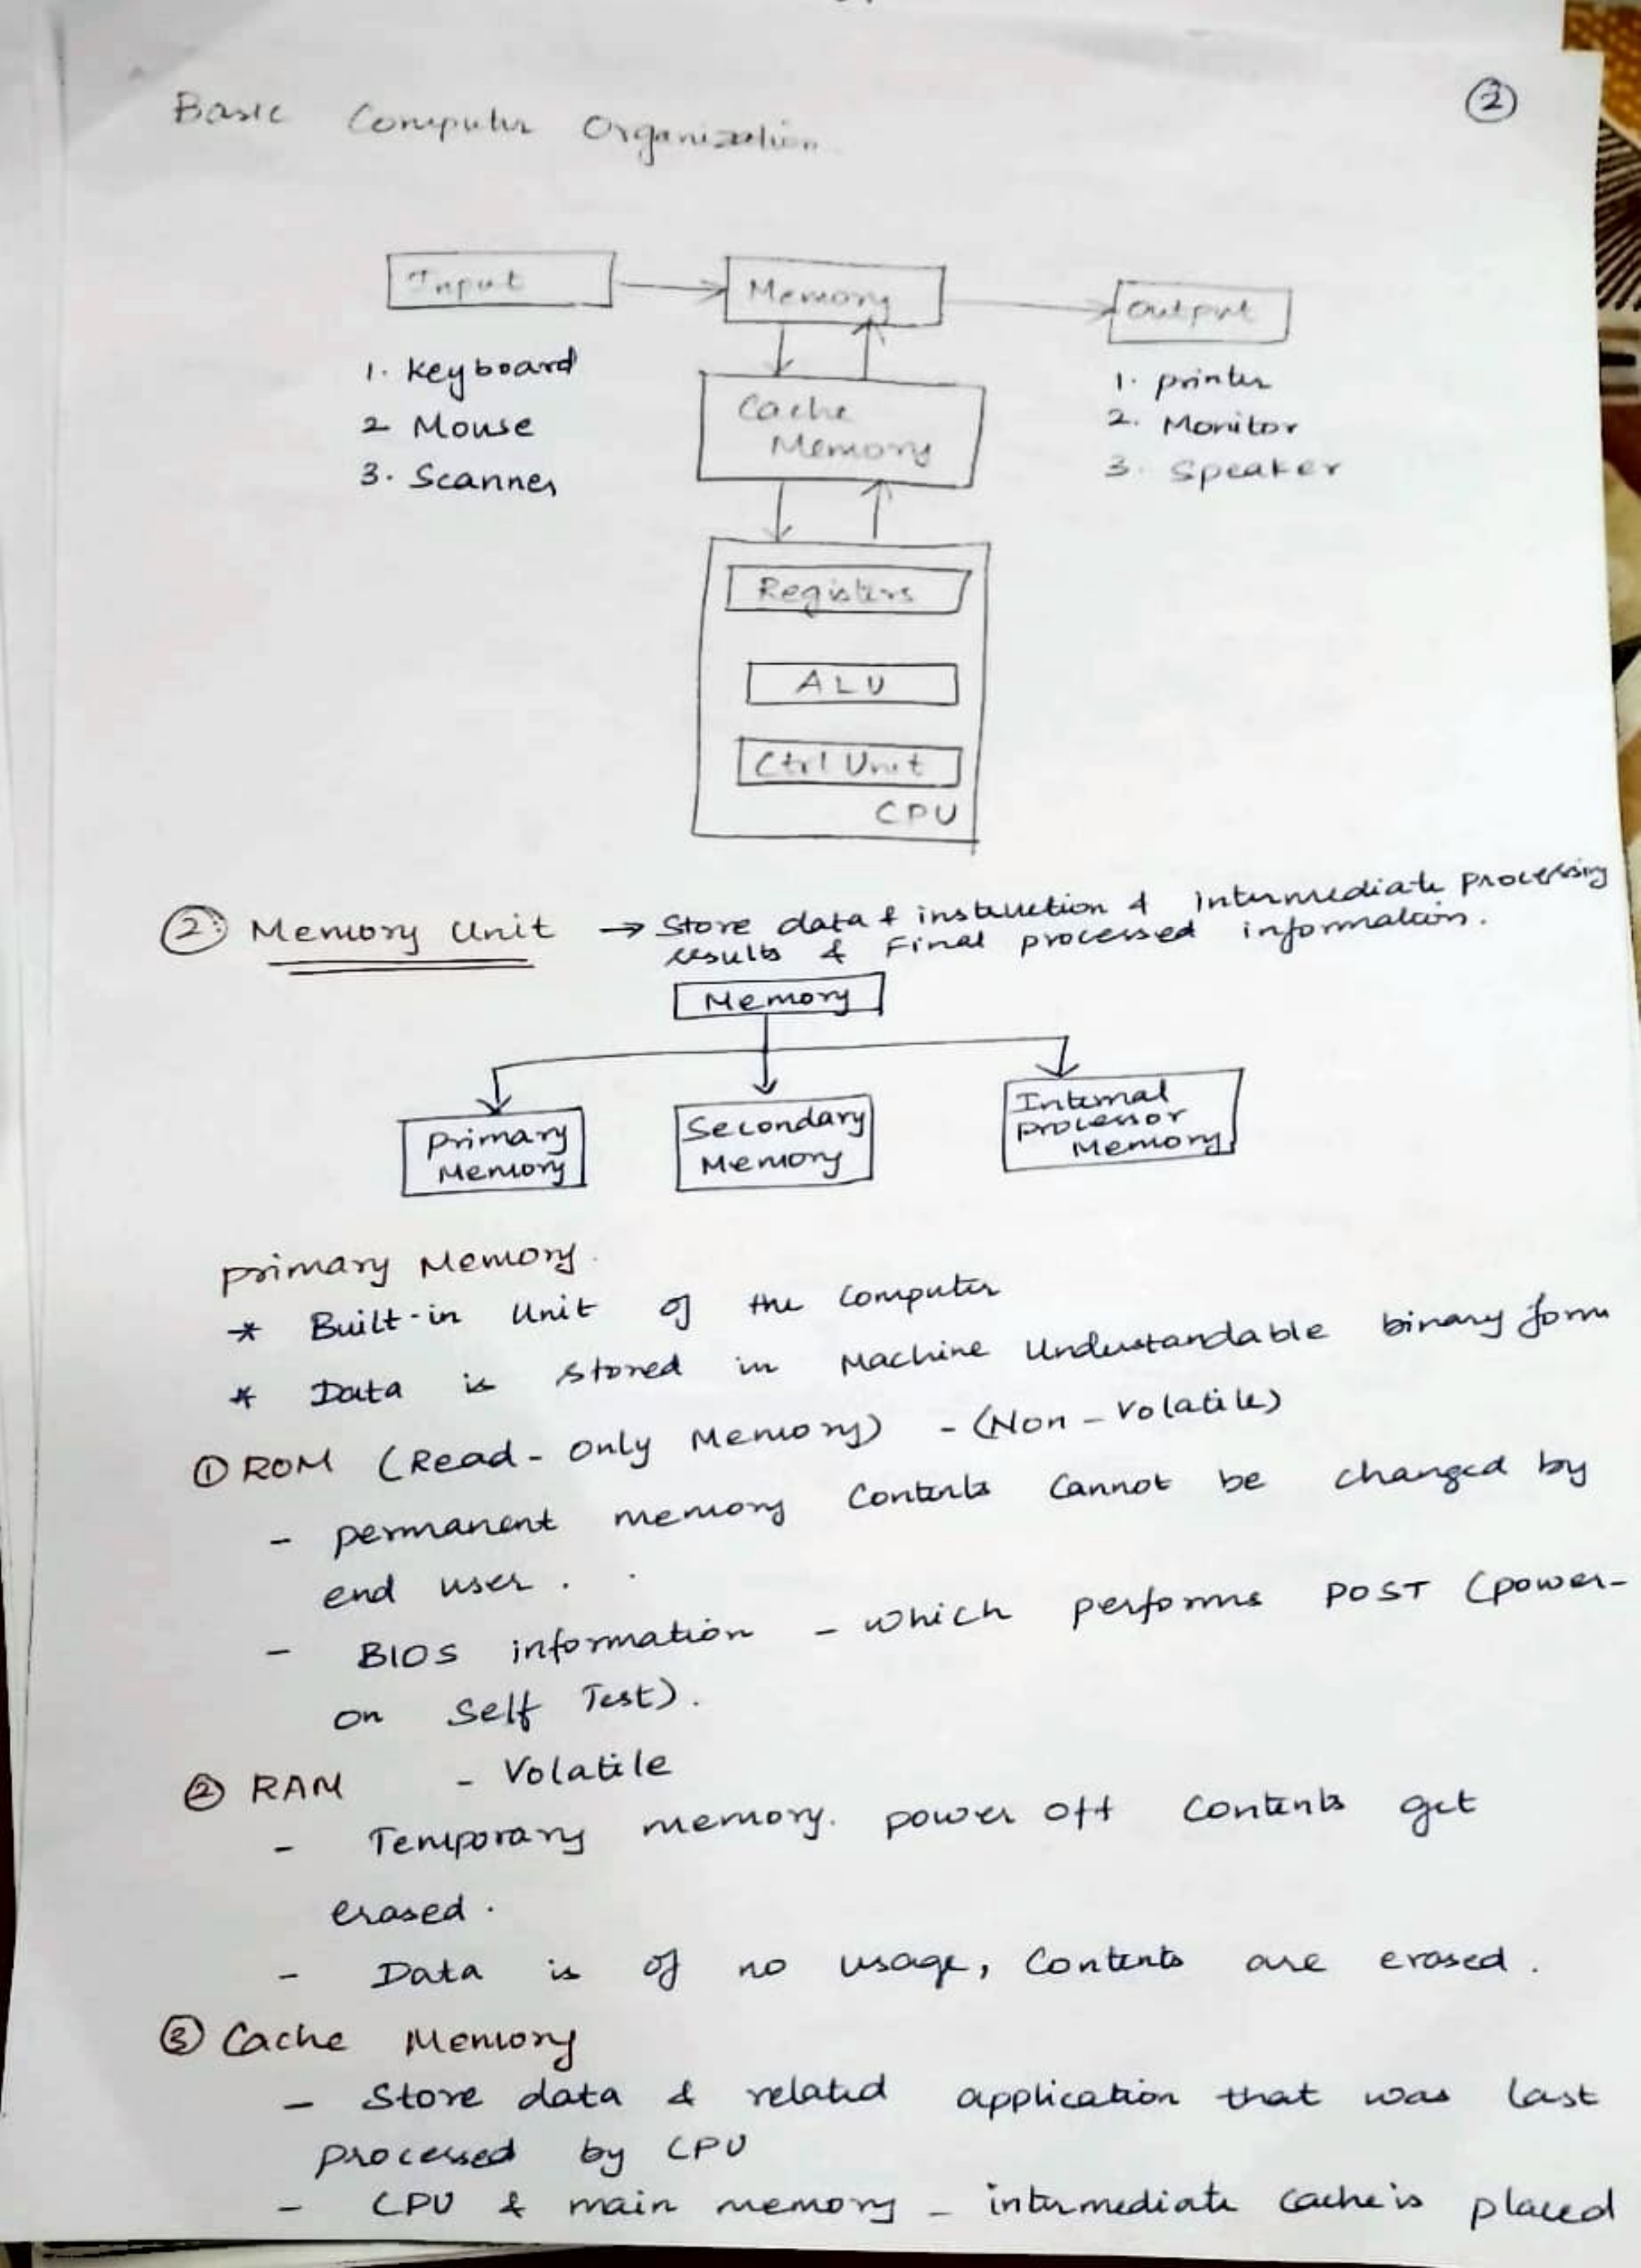 2
Basic Computer Organization
Input
Memory
Output
1. Keyboard
2 Mouse
3. Scanner
Cache
Memory
1. printer
2. Monitor
3. Speaker
Registers
ALU
Ctrl Unit
CPU
2. Memory Unit → Store data & instruction & intermediate processing
results & Final processed information.
Memory
Primary
Memory
Secondary
Memory
Internal
processor
Memory
primary Memory.
* Built-in Unit of the Computer
* Data is stored in Machine Understandable binary form
1 ROM (Read-Only Memory) - (Non-Volatile)
- permanent memory Contents Cannot be changed by
end user.
- BIOS information - which performs POST (power-
on Self Test).
2 RAM - Volatile
- Temporary memory. power off Contents get
erased.
- Data is of no usage, Contents are erased.
3 Cache Memory
- Store data & related application that was last
processed by CPU
- CPU & main memory - intermediate Cache is placed